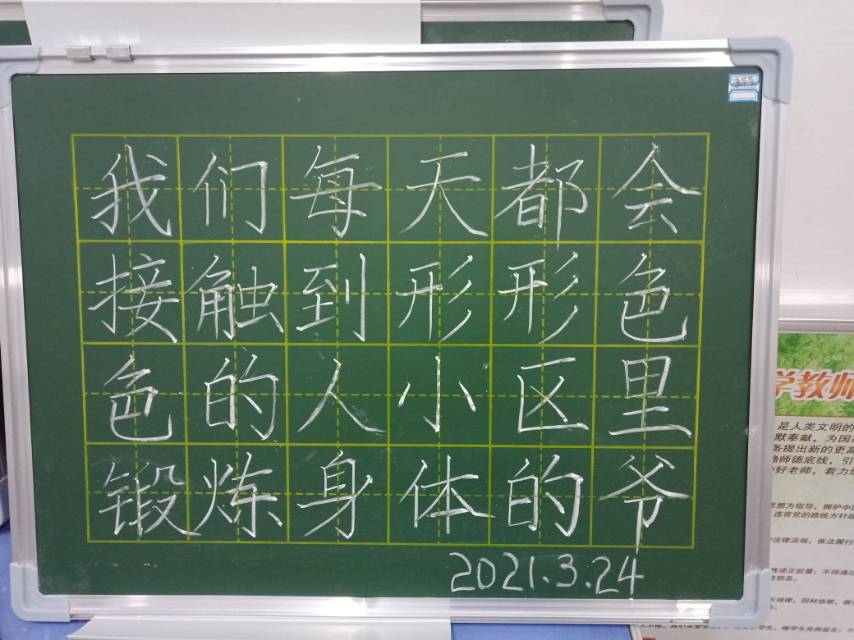 我们每天都会
接触到形形色
色的人小区里
锻炼身体的爷
2021.3.24
学教师
是人类文明的
默奉献，为国
务提出新的更高
师德底线，引
好老师，着力